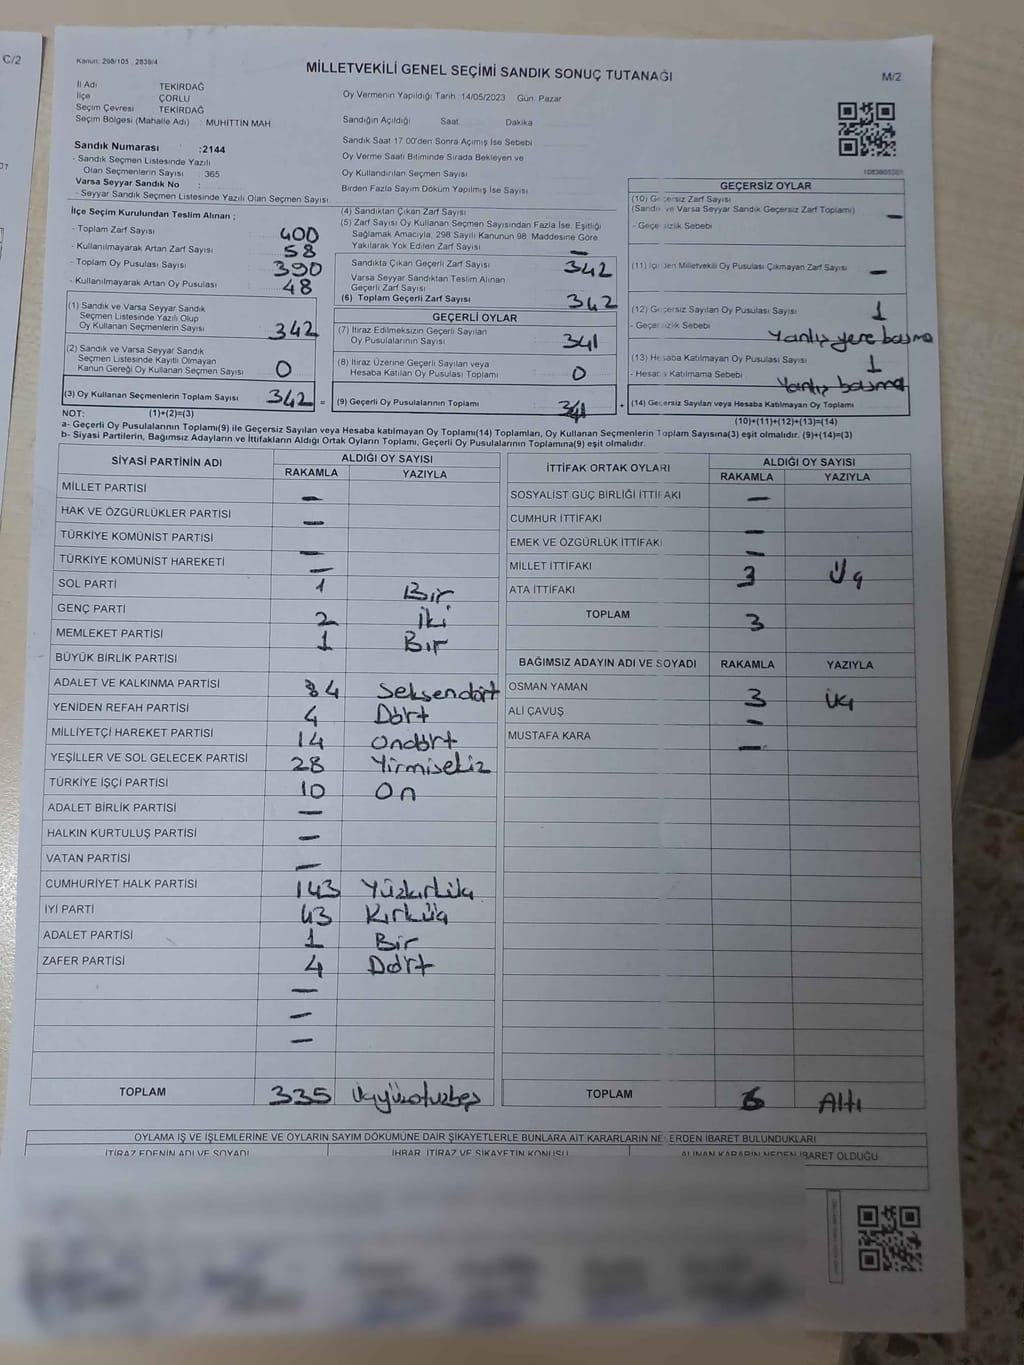 C/2
Kanun: 298/105 , 2839/4
MİLLETVEKİLİ GENEL SEÇİMİ SANDIK SONUÇ TUTANAĞI
M/2
İl Adı TEKİRDAĞ
İlçe ÇORLU
Seçim Çevresi TEKİRDAĞ
Seçim Bölgesi (Mahalle Adı) : MUHİTTİN MAH
Sandık Numarası :2144
- Sandık Seçmen Listesinde Yazılı
Olan Seçmenlerin Sayısı : 365
Varsa Seyyar Sandık No :
- Seyyar Sandık Seçmen Listesinde Yazılı Olan Seçmen Sayısı
Oy Vermenin Yapıldığı Tarih :14/05/2023 Gün: Pazar
Sandığın Açıldığı Saat: Dakika
Sandık Saat 17:00'den Sonra Açımış İse Sebebi
Oy Verme Saati Bitiminde Sırada Bekleyen ve
Oy Kullandırılan Seçmen Sayısı
Birden Fazla Sayım Döküm Yapılmış İse Sayısı
İlçe Seçim Kurulundan Teslim Alınan ;
- Toplam Zarf Sayısı 400
- Kullanılmayarak Artan Zarf Sayısı 58
- Toplam Oy Pusulası Sayısı 390
- Kullanılmayarak Artan Oy Pusulası 48
(1) Sandık ve Varsa Seyyar Sandık
Seçmen Listesinde Yazılı Olup
Oy Kullanan Seçmenlerin Sayısı 342
(2) Sandık ve Varsa Seyyar Sandık
Seçmen Listesinde Kayıtlı Olmayan
Kanun Gereği Oy Kullanan Seçmen Sayısı 0
(3) Oy Kullanan Seçmenlerin Toplam Sayısı 342 =
(4) Sandıktan Çıkan Zarf Sayısı
(5) Zarf Sayısı Oy Kullanan Seçmen Sayısından Fazla İse, Eşitliği
Sağlamak Amacıyla, 298 Sayılı Kanunun 98. Maddesine Göre
Yakılarak Yok Edilen Zarf Sayısı —
Sandıkta Çıkan Geçerli Zarf Sayısı 342
Varsa Seyyar Sandıktan Teslim Alınan
Geçerli Zarf Sayısı
(6) Toplam Geçerli Zarf Sayısı 342
GEÇERLİ OYLAR
(7) İtiraz Edilmeksizin Geçerli Sayılan
Oy Pusulalarının Sayısı 341
(8) İtiraz Üzerine Geçerli Sayılan veya
Hesaba Katılan Oy Pusulası Toplamı 0
(9) Geçerli Oy Pusulalarının Toplamı 341 +
GEÇERSİZ OYLAR
(10) Geçersiz Zarf Sayısı
(Sandık ve Varsa Seyyar Sandık Geçersiz Zarf Toplamı) —
- Geçersizlik Sebebi
(11) İçinden Milletvekili Oy Pusulası Çıkmayan Zarf Sayısı —
(12) Geçersiz Sayılan Oy Pusulası Sayısı 1
- Geçersizlik Sebebi Yanlış yere basma
(13) Hesaba Katılmayan Oy Pusulası Sayısı 1
- Hesaba Katılmama Sebebi Yanlış basma
(14) Geçersiz Sayılan veya Hesaba Katılmayan Oy Toplamı
NOT: (1)+(2)=(3) (10)+(11)+(12)+(13)=(14)
a- Geçerli Oy Pusulalarının Toplamı(9) ile Geçersiz Sayılan veya Hesaba katılmayan Oy Toplamı(14) Toplamları, Oy Kullanan Seçmenlerin Toplam Sayısına(3) eşit olmalıdır. (9)+(14)=(3)
b- Siyasi Partilerin, Bağımsız Adayların ve İttifakların Aldığı Ortak Oyların Toplamı, Geçerli Oy Pusulalarının Toplamına(9) eşit olmalıdır.
SİYASİ PARTİNİN ADI ALDIĞI OY SAYISI
RAKAMLA YAZIYLA
MİLLET PARTİSİ —
HAK VE ÖZGÜRLÜKLER PARTİSİ —
TÜRKİYE KOMÜNİST PARTİSİ —
TÜRKİYE KOMÜNİST HAREKETİ —
SOL PARTİ 1 Bir
GENÇ PARTİ 2 İki
MEMLEKET PARTİSİ 1 Bir
BÜYÜK BİRLİK PARTİSİ
ADALET VE KALKINMA PARTİSİ 84 Seksendört
YENİDEN REFAH PARTİSİ 4 Dört
MİLLİYETÇİ HAREKET PARTİSİ 14 Ondört
YEŞİLLER VE SOL GELECEK PARTİSİ 28 Yirmisekiz
TÜRKİYE İŞÇİ PARTİSİ 10 On
ADALET BİRLİK PARTİSİ —
HALKIN KURTULUŞ PARTİSİ —
VATAN PARTİSİ —
CUMHURİYET HALK PARTİSİ 143 Yüzkırküç
İYİ PARTİ 43 Kırküç
ADALET PARTİSİ 1 Bir
ZAFER PARTİSİ 4 Dört
—
—
—
TOPLAM 335 üçyüzotuzbeş
İTTİFAK ORTAK OYLARI ALDIĞI OY SAYISI
RAKAMLA YAZIYLA
SOSYALİST GÜÇ BİRLİĞİ İTTİFAKI —
CUMHUR İTTİFAKI —
EMEK VE ÖZGÜRLÜK İTTİFAKI —
MİLLET İTTİFAKI 3 Üç
ATA İTTİFAKI
TOPLAM 3
BAĞIMSIZ ADAYIN ADI VE SOYADI RAKAMLA YAZIYLA
OSMAN YAMAN 3 üç
ALİ ÇAVUŞ —
MUSTAFA KARA —
TOPLAM 6 Altı
OYLAMA İŞ VE İŞLEMLERİNE VE OYLARIN SAYIM DÖKÜMÜNE DAİR ŞİKAYETLERLE BUNLARA AİT KARARLARIN NELERDEN İBARET BULUNDUKLARI
İTİRAZ EDENİN ADI VE SOYADI İHBAR, İTİRAZ VE ŞİKAYETİN KONUSU ALINAN KARARIN NEDEN İBARET OLDUĞU